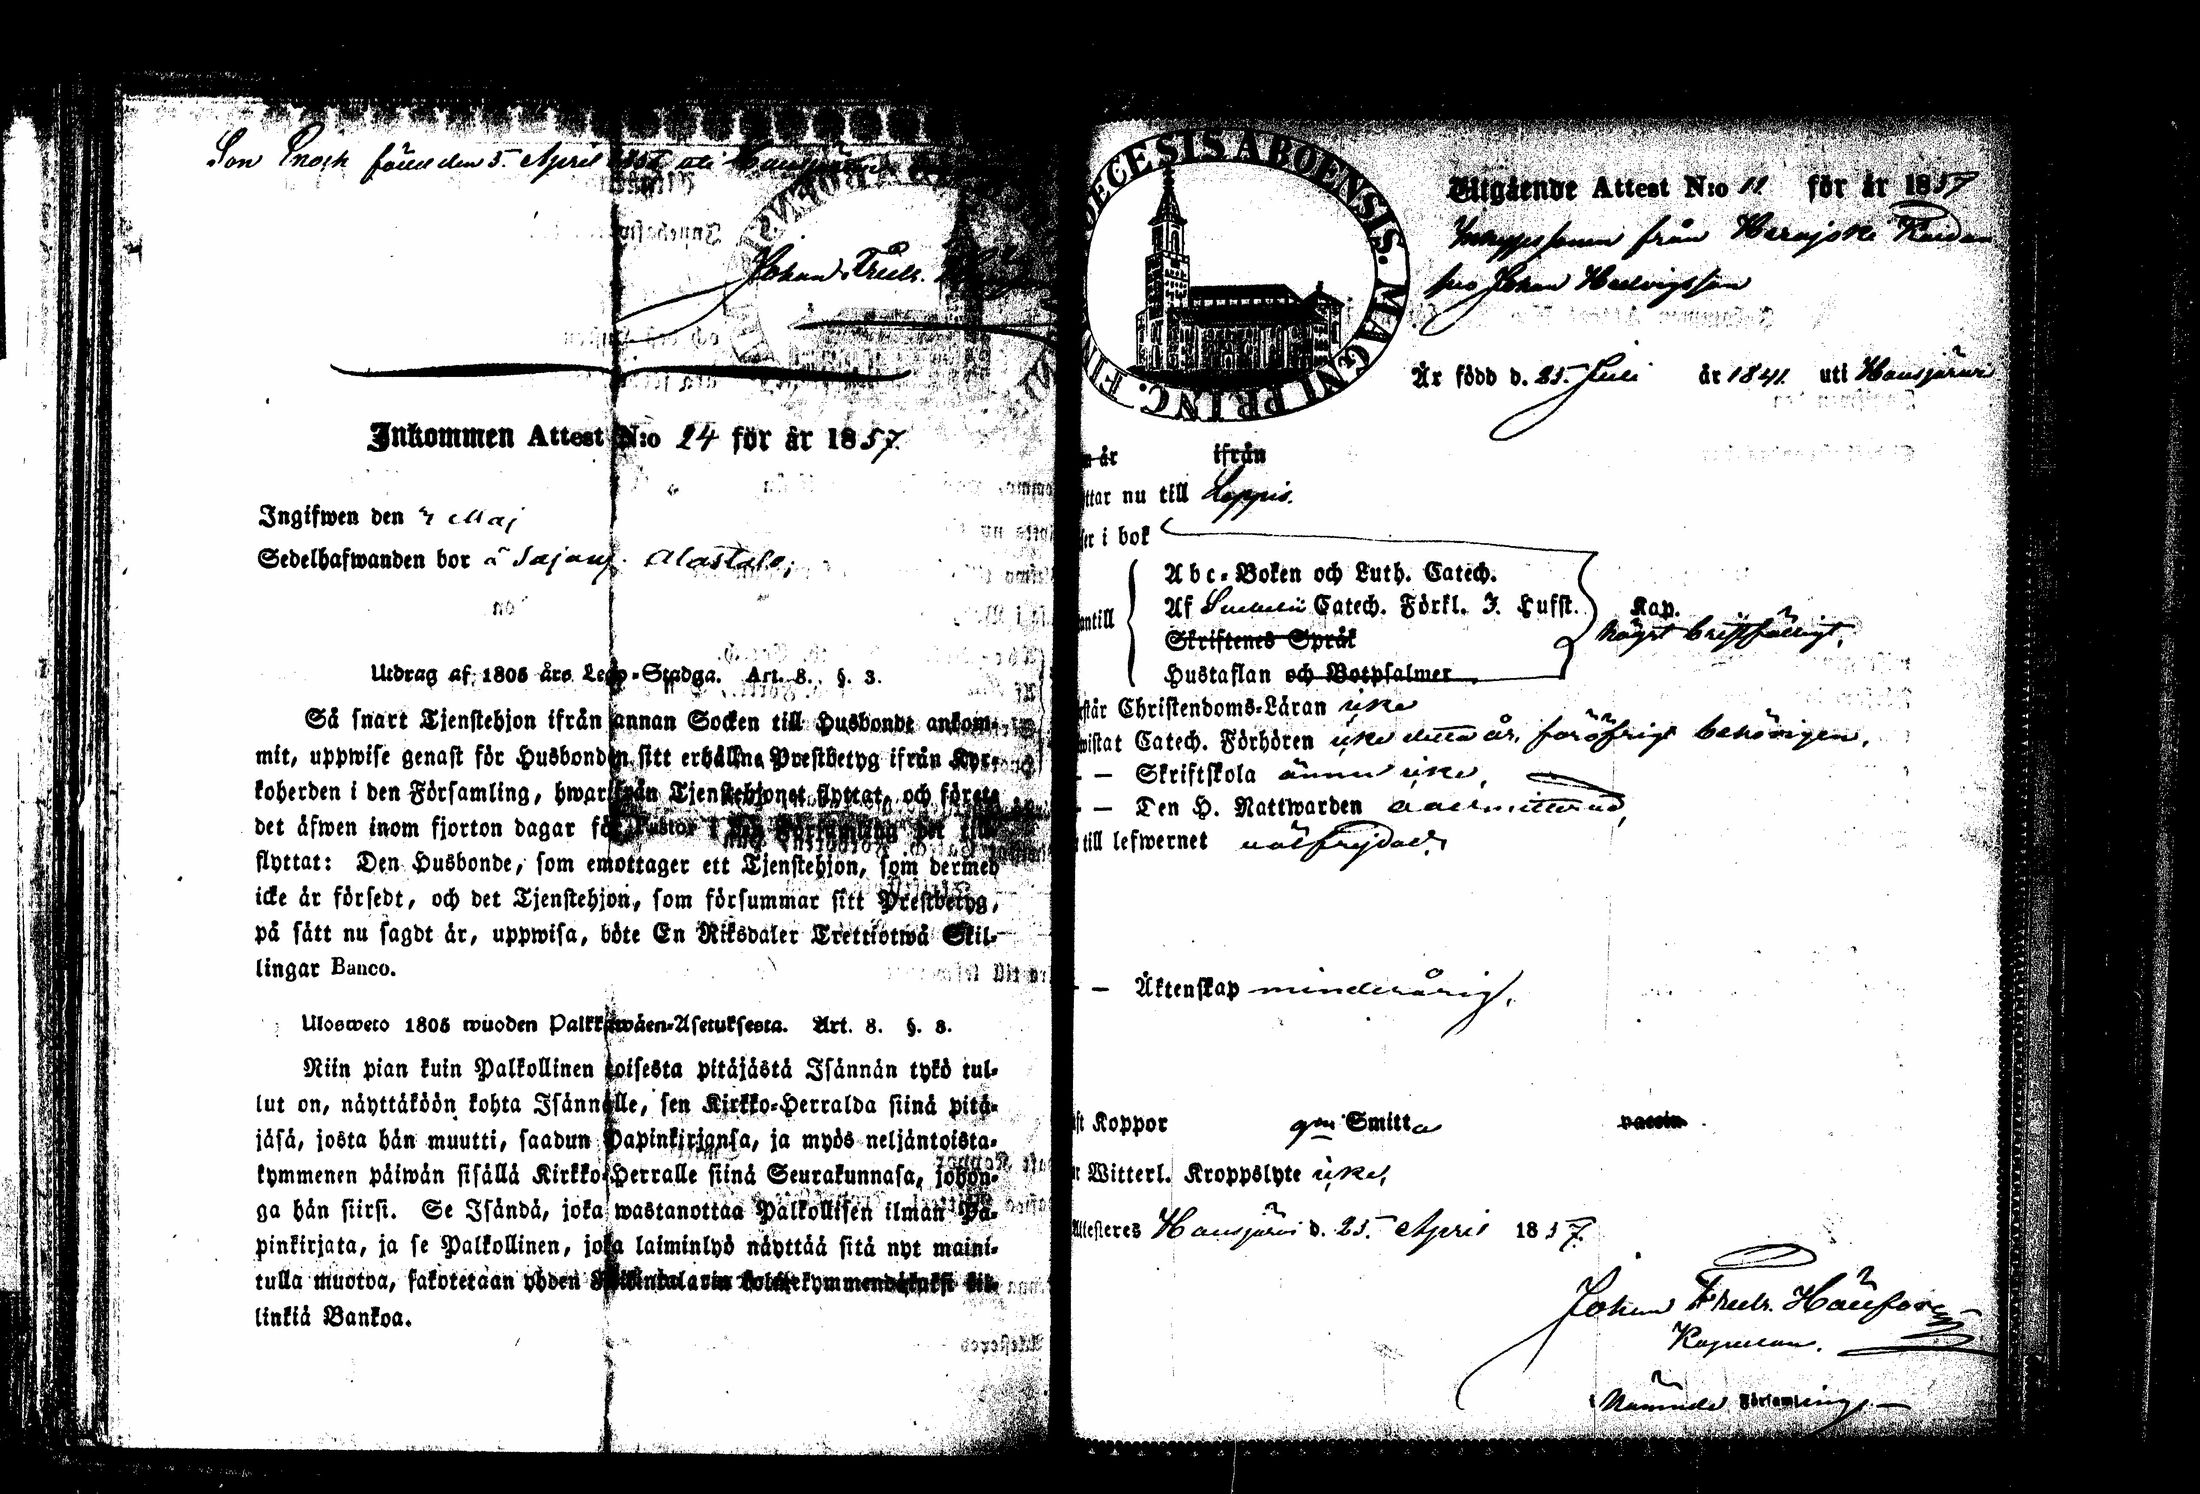 Son Enoch född den 5. April uti
Johan Fredr.
Inkommen Attest N:o 24 för år 1857.
Ingifwen den 7 Maj
Sedelhafwanden bor å Sajany. Alastalo,
Utdrag af 1805 års Lego-Stadga. Art. 8. §. 3.
Så snart Tjenstehjon ifrån annan Socken till Husbonde ankom-
mit, uppwise genast för Husbonden sitt erhållna Prestbetyg ifrån Kyr-
koherden i den Församling, hwarifrån Tjenstehjonet flyttat, och förete
det äfwen inom fjorton dagar för Pastor i den Församling det till
flyttat: Den Husbonde, som emottager ett Tjenstehjon, som dermed
icke är försedt, och det Tjenstehjon, som försummar sitt Prestbetyg,
på sätt nu sagdt är, uppwisa, böte En Riksdaler Trettiotwå Skil-
lingar Banco.
Ulosweto 1805 wuoden Palkkawäen-Asetuksesta. Art. 8. §. 3.
Niin pian kuin Palkollinen toisesta pitäjästä Isännän tykö tul-
lut on, näyttäköön kohta Isännälle, sen Kirkko-Herralda siinä pitä-
jäsä, josta hän muutti, saadun Papinkirjansa, ja myös neljäntoista-
kymmenen päiwän sisällä Kirkko-Herralle siinä Seurakunnasa, johon-
ga hän siirsi. Se Isändä, joka wastanottaa Palkollisen ilman Pa-
pinkirjata, ja se Palkollinen, joka laiminlyö näyttää sitä nyt maini-
tulla muotoa, sakotetaan yhden Riikintalarin kolmekymmendäkaksi kil-
linkiä Bankoa.
DIOECESIS ABOENSIS. MAGNI PRINC. FIN
Utgående Attest N:o 11 för år 1857
från Herajoki
Johan Hedvigsson
Är född d. 25. Juli år 1841. uti Hausjärvi
år ifrån
ttar nu till Loppis.
ser i bok
antill
Abc-Boken och Luth. Catech.
Af Catech. Förkl. J. Lufft. Kap.
Skriftenes Språk något bristfälligt.
Hustaflan och Botpsalmer
står Christendoms-Läran icke
wistat Catech. Förhören icke detta år, föröfrigt behörigen.
– Skriftskola ännu icke,
– – Den H. Nattwarden oadmitterad,
till lefwernet wälfrejdad.
– – Äktenskap minderårig.
st Koppor gm Smitta vaccin
r Witterl. Kroppslyte icke,
Attesteres Hausjärvi d. 25. April 1857.
Johan Fredr.
Kapellan.
i nämnde Församling.